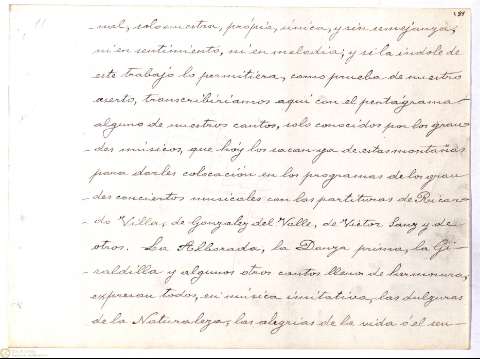 184
nal, solo nuestra, própia, única, y sin semejanza,
ni en sentimiento, ni en melodia; y si la índole de
este trabajo lo permitiera, como prueba de nuestro
acerto, transcribiríamos aquí con el pentágrama
alguno de nuestros cantos, solo conocidos por los gran-
-des músicos, que hoy los sacan ya de estas montañas
para darles colocación en los programas de los gran-
-des conciertos musicales con las partituras de Ricar-
-do Villa, de Gonzalez del Valle, de Victor Sanz y de
otros. La Alborada, la Danza prima, la Gi-
raldilla y algunos otros cantos llenos de hermosura,
expresan todos, en música imitativa, las dulzuras
de la Naturaleza, las alegrías de la vida ó el sen-